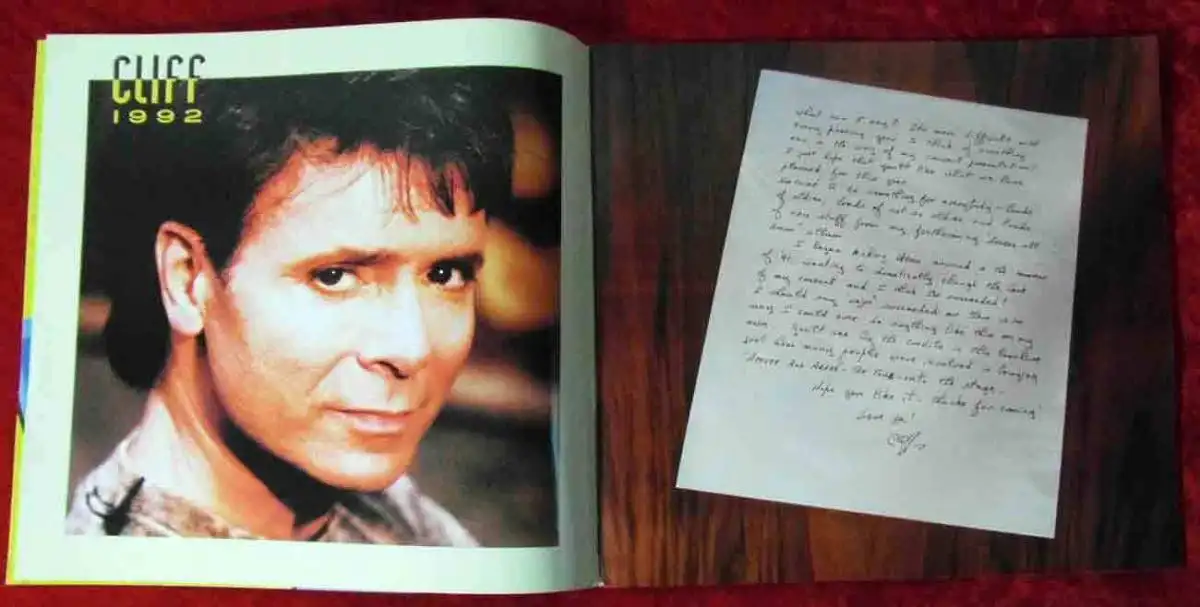 CLIFF
1992
What can I say? The more difficult
every passing year I think of something
new in the way of my concert presentation!
I just hope that you'll like what we have
planned for this year.
to be something for everybody – loads
of oldies, loads of not so oldies and loads
of new stuff from my forthcoming
album
I began making ideas around
of '91 wanting to dramatically change the look
of my concert and I think I've succeeded!
I should say 'we've' succeeded as there is no
way I could ever do anything like this on my
own. You'll see by the credits in this brochure
just how many people were involved in bringing
'Access All Areas – The Tour' – onto the stage.
Hope you like it – thanks for coming!
Love ya!
Cliff